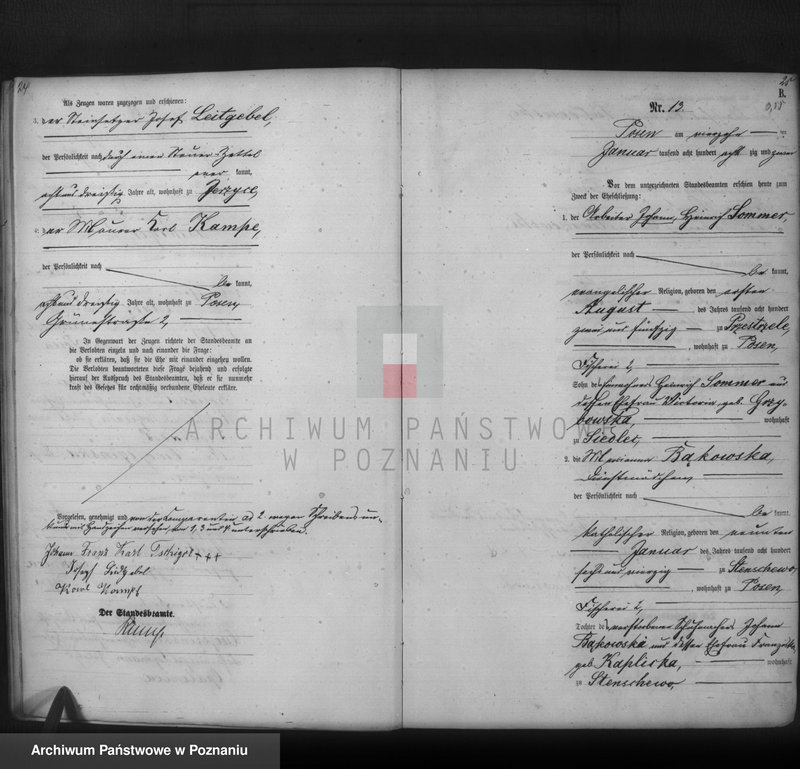 24
Als Zeugen waren zugezogen und erschienen:
3. der Steinsetzer Josef Leitgebel,
der Persönlichkeit nach durch einen Steuer-Zettel
aner kannt,
acht und dreißig Jahre alt, wohnhaft zu Jerzyce,
4. der Maurer Karl Kampe,
der Persönlichkeit nach
be kannt,
acht und dreißig Jahre alt, wohnhaft zu Posen,
Grünestraße 2,
In Gegenwart der Zeugen richtete der Standesbeamte an
die Verlobten einzeln und nach einander die Frage:
ob sie erklären, daß sie die Ehe mit einander eingehen wollen.
Die Verlobten beantworteten diese Frage bejahend und erfolgte
hierauf der Ausspruch des Standesbeamten, daß er sie nunmehr
kraft des Gesetzes für rechtmäßig verbundene Eheleute erkläre.
Vorgelesen, genehmigt und von der Komparentin ad 2 wegen Schreibensun-
kunde mit Handzeichen versehen, von 1, 3 und 4 unterschrieben.
Johann Franz Karl +++
Josef Leitgebel
Karl Kampe
Der Standesbeamte.
25
B.
Nr. 13.
Posen am vierzehn ten
Januar tausend acht hundert acht zig und zwei
Vor dem unterzeichneten Standesbeamten erschien heute zum
Zweck der Eheschließung:
1. der Arbeiter Johann Heinrich Sommer,
der Persönlichkeit nach
be kannt,
evangelischer Religion, geboren den ersten
August des Jahres tausend acht hundert
zwei und fünfzig zu
, wohnhaft zu Posen,
Fischerei 2,
Sohn des Heinrich Sommer und
dessen Ehefrau Victoria, geb. Grzy-
bowska, wohnhaft
zu Siedlec,
2. die Marianna Bąkowska,
Dienstmädchen,
der Persönlichkeit nach
be kannt,
katholischer Religion, geboren den neunten
Januar des Jahres tausend acht hundert
sechs und vierzig zu Stenschewo,
, wohnhaft zu Posen,
Fischerei 2,
Tochter des verstorbenen Schuhmachers Johann
Bąkowski und dessen Ehefrau Franziska,
geb. Kapliska, wohnhaft
zu Stenschewo,
ARCHIWUM PAŃSTWOWE
W POZNANIU
Archiwum Państwowe w Poznaniu